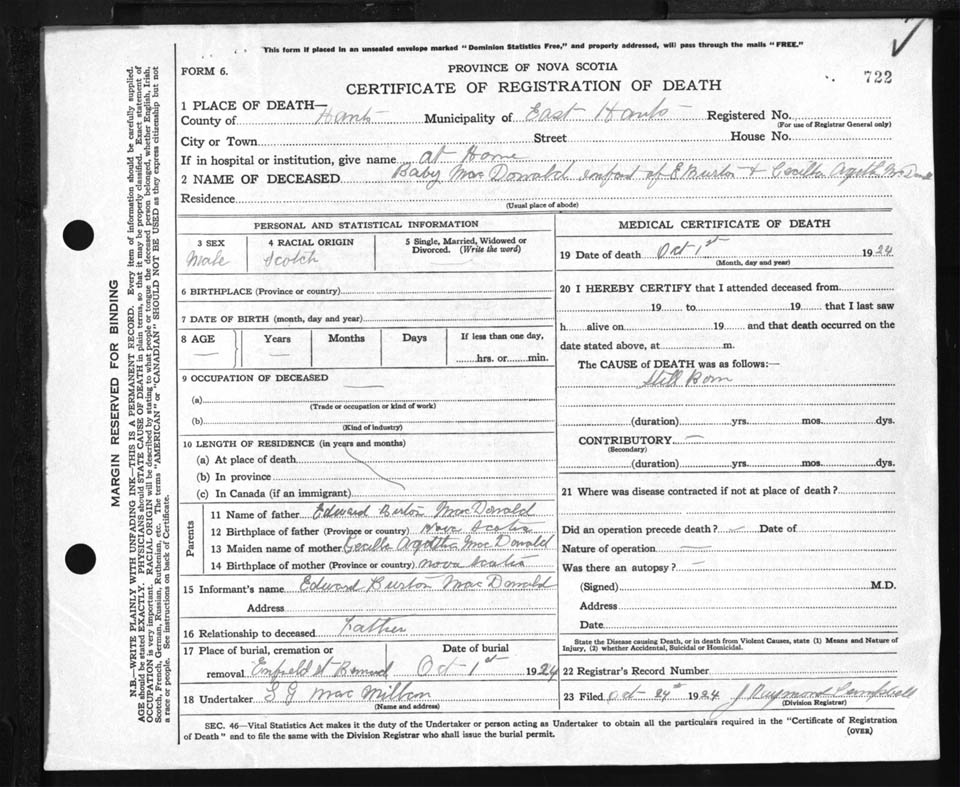 This form if placed in an unsealed envelope marked "Dominion Statistics Free," and properly addressed, will pass through the mails "FREE."
FORM 6.
PROVINCE OF NOVA SCOTIA
722
CERTIFICATE OF REGISTRATION OF DEATH
1 PLACE OF DEATH—
County of Hants Municipality of East Hants Registered No.
(For use of Registrar General only)
City or Town Street House No.
If in hospital or institution, give name at Home
2 NAME OF DECEASED Baby MacDonald infant of E Burton & Cecilla Agatha McDonald
Residence
(Usual place of abode)
PERSONAL AND STATISTICAL INFORMATION
3 SEX 4 RACIAL ORIGIN 5 Single, Married, Widowed or Divorced. (Write the word)
Male Scotch
6 BIRTHPLACE (Province or country)
7 DATE OF BIRTH (month, day and year)
8 AGE Years Months Days If less than one day,
hrs. or min.
9 OCCUPATION OF DECEASED
(a)
(Trade or occupation or kind of work)
(b)
(Kind of industry)
10 LENGTH OF RESIDENCE (in years and months)
(a) At place of death
(b) In province
(c) In Canada (if an immigrant)
Parents
11 Name of father Edward Burton MacDonald
12 Birthplace of father (Province or country) Nova Scotia
13 Maiden name of mother Cecilla Agatha MacDonald
14 Birthplace of mother (Province or country) Nova Scotia
15 Informant's name Edward Burton MacDonald
Address
16 Relationship to deceased Father
17 Place of burial, cremation or Date of burial
removal Enfield St Bernard Oct 1st 1924
18 Undertaker S G MacMillan
(Name and address)
MEDICAL CERTIFICATE OF DEATH
19 Date of death Oct 1st 1924
(Month, day and year)
20 I HEREBY CERTIFY that I attended deceased from
19 to 19 that I last saw
h alive on 19 and that death occurred on the
date stated above, at m.
The CAUSE of DEATH was as follows:—
Still Born
(duration) yrs. mos. dys.
CONTRIBUTORY
(Secondary)
(duration) yrs. mos. dys.
21 Where was disease contracted if not at place of death?
Did an operation precede death? Date of
Nature of operation
Was there an autopsy?
(Signed) M.D.
Address
Date
State the Disease causing Death, or in death from Violent Causes, state (1) Means and Nature of
Injury, (2) whether Accidental, Suicidal or Homicidal.
22 Registrar's Record Number
23 Filed Oct 24th 1924 J Raymond Campbell
(Division Registrar)
SEC. 46—Vital Statistics Act makes it the duty of the Undertaker or person acting as Undertaker to obtain all the particulars required in the "Certificate of Registration
of Death" and to file the same with the Division Registrar who shall issue the burial permit.
(OVER)
MARGIN RESERVED FOR BINDING
N.B.—WRITE PLAINLY WITH UNFADING INK—THIS IS A PERMANENT RECORD. Every item of information should be carefully supplied.
AGE should be stated EXACTLY. PHYSICIANS should STATE CAUSE OF DEATH in plain terms, so that it may be properly classified. Exact statement of
OCCUPATION is very important. RACIAL ORIGIN will be described by stating to what people or tongue the deceased person belonged, whether English, Irish,
Scotch, French, German, Russian, Ruthenian, etc. The terms "AMERICAN" or "CANADIAN" SHOULD NOT BE USED as they express citizenship but not
a race or people. See instructions on back of Certificate.